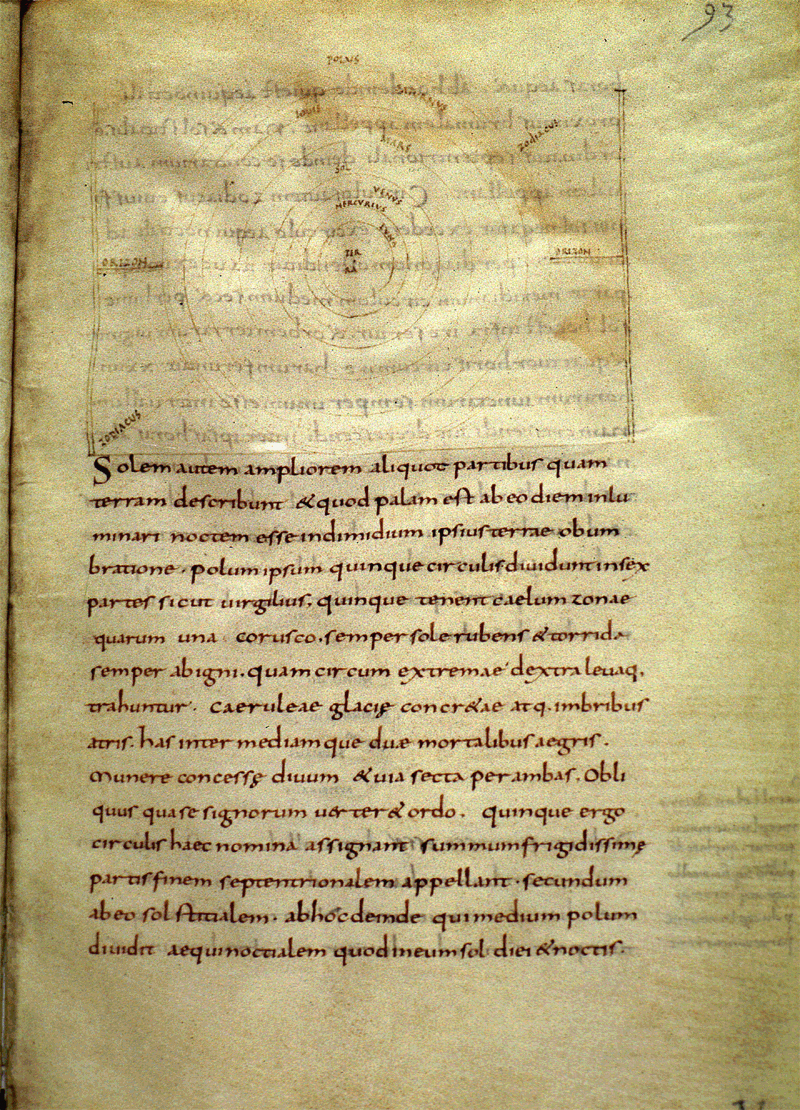 93
POLUS
SATURNUS
IOVIS
ZODIACUS
MARS
SOL
VENUS
MERCURIUS
LUNA
TER
RA
ORIZON
ORIZON
ZODIACUS
Solem autem ampliorem aliquot partibus quam
terram describunt &quod palam est ab eo diem inlu
minari noctem esse indimidium ipsius terrae obum
bratione. polum ipsum quinque circulis diuidunt insex
partes sicut uirgilius. quinque tenent caelum zonae
quarum una corusco. semper sole rubens &torrida
semper ab igni. quam circum extremae dextra leuaq.
trahuntur. caeruleae glacie concr&ae atq. imbribus
atris. has inter mediamque duae mortalibus aegris.
Munere concesse diuum &uia secta per ambas. Obli
quus qua se signorum uerter& ordo. quinque ergo
circulis haec nomina assignant summum frigidissime
partis finem septentrionalem appellant. secundum
ab eo solstitialem. ab hoc deinde qui medium polum
diuidit aequinoctialem quod in eum sol diei &noctis.